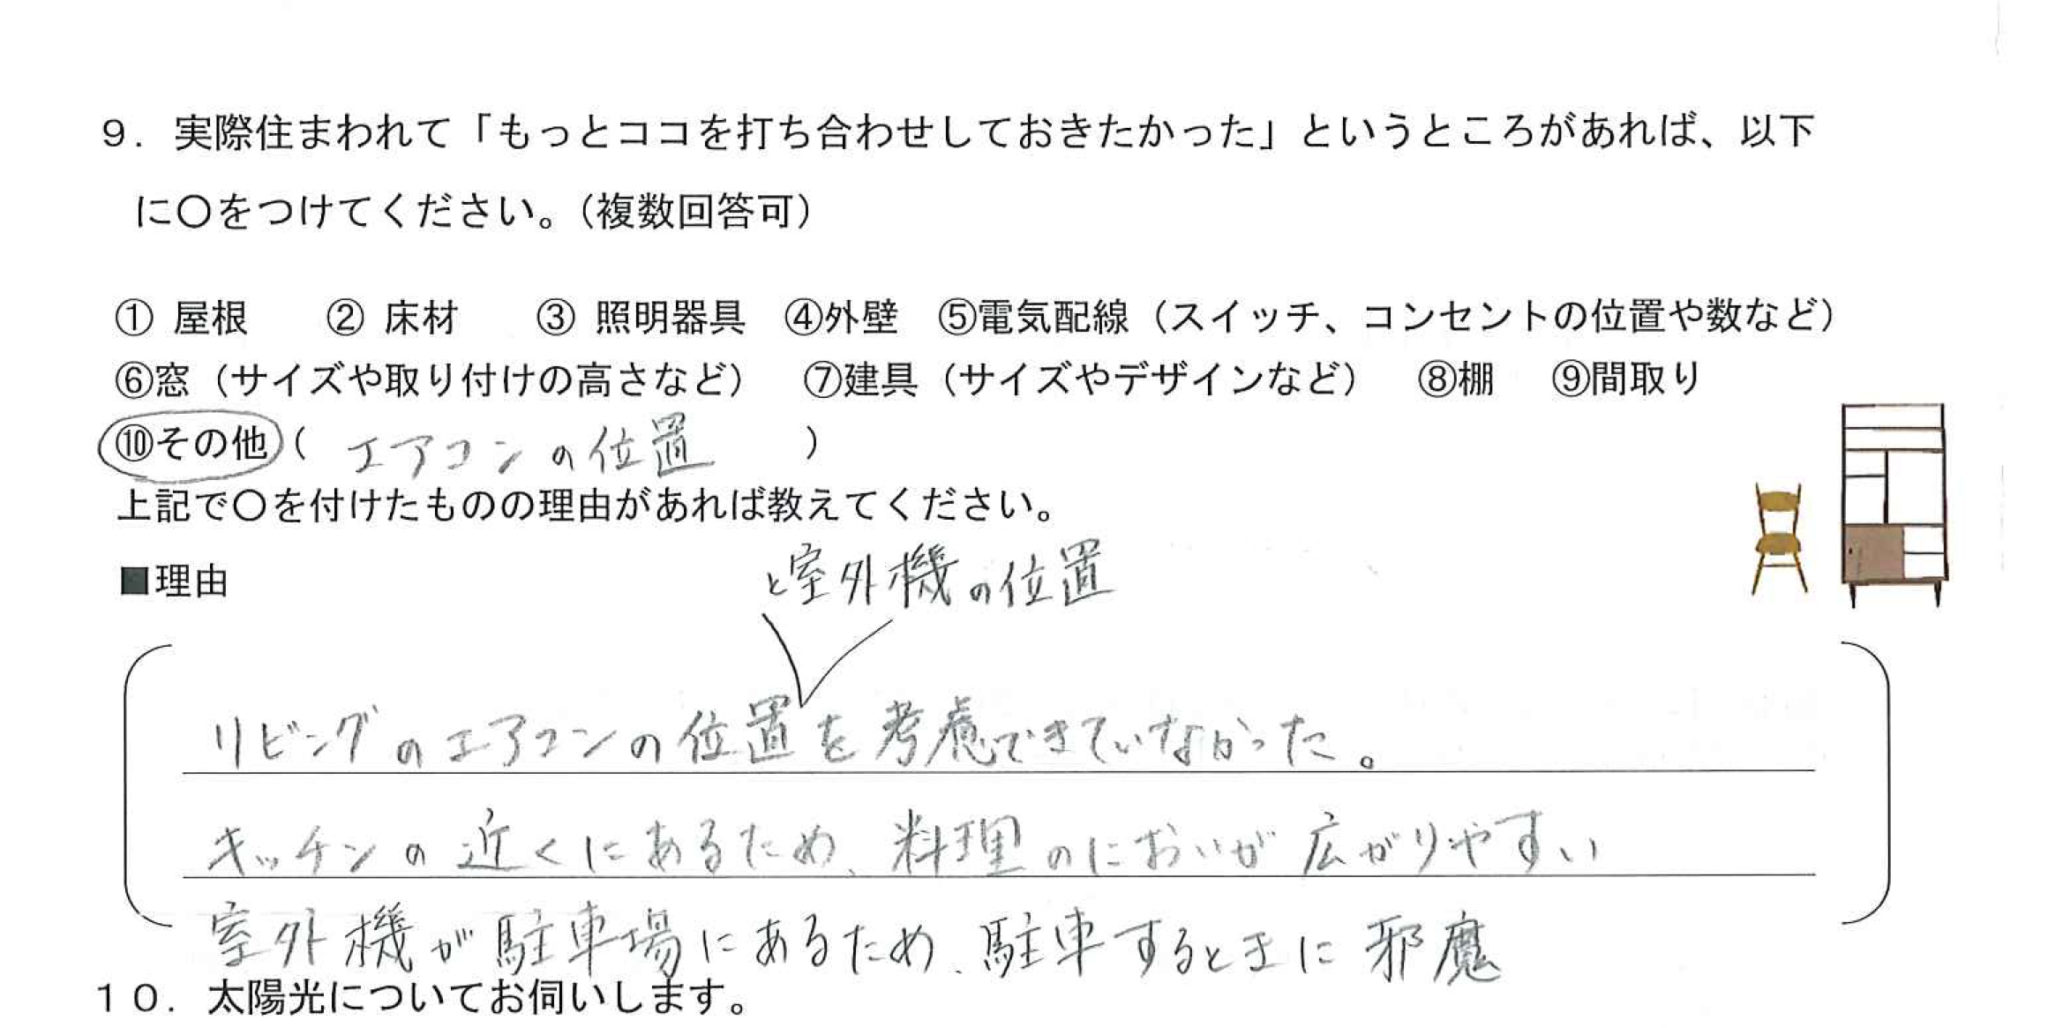 ９．実際住まわれて「もっとココを打ち合わせしておきたかった」というところがあれば、以下
に〇をつけてください。（複数回答可）
① 屋根　② 床材　③ 照明器具　④外壁　⑤電気配線（スイッチ、コンセントの位置や数など）
⑥窓（サイズや取り付けの高さなど）　⑦建具（サイズやデザインなど）　⑧棚　⑨間取り
⑩その他（ エアコンの位置 ）
上記で〇を付けたものの理由があれば教えてください。
■理由
と室外機の位置
リビングのエアコンの位置を考慮できていなかった。
キッチンの近くにあるため、料理のにおいが広がりやすい
室外機が駐車場にあるため、駐車するときに邪魔
１０．太陽光についてお伺いします。